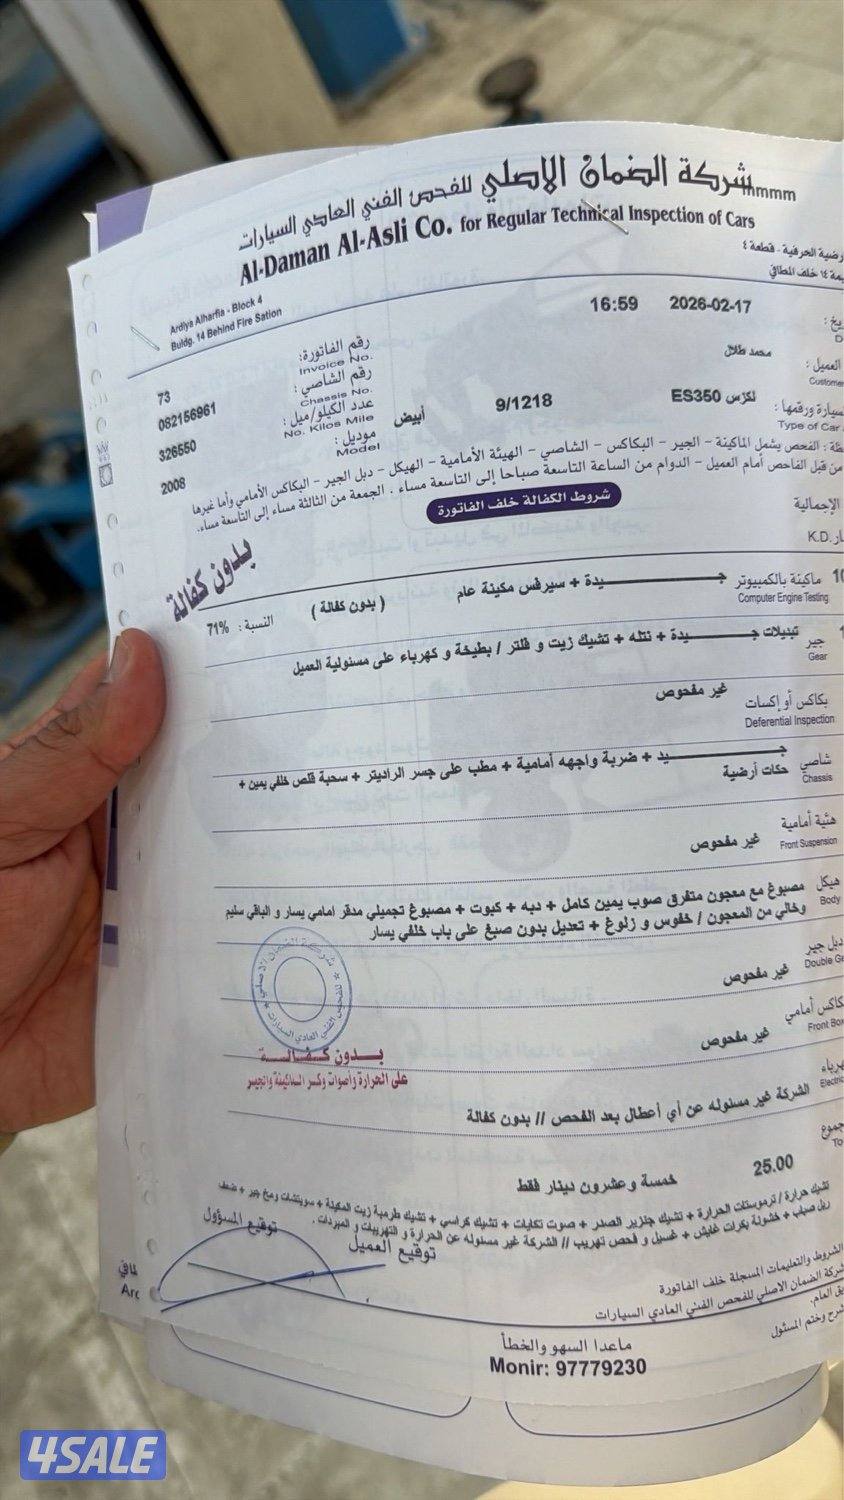 شركة الضمان الاصلي للفحص الفني العادي السيارات
Al-Daman Al-Asli Co. for Regular Technical Inspection of Cars
رضية الحرفية - قطعة ٤
Ardiya Alharfia - Block 4
يمة ١٤ خلف المطافي
Buldg. 14 Behind Fire Sation
16:59 2026-02-17
رقم الفاتورة: 73
Invoice No.
العميل : محمد طلال
Customer
رقم الشاصي : 082156961
Chassis No.
سيارة ورقمها : لكزس ES350 9/1218 أبيض
Type of Car
عدد الكيلو/ميل : 326550
No. Kilos Mile
موديل : 2008
Model
ظة : الفحص يشمل الماكينة - الجير - البكاكس - الشاصي - الهيئة الأمامية - الهيكل - دبل الجير - البكاكس الأمامي وأما غيرها
من قبل الفاحص أمام العميل - الدوام من الساعة التاسعة صباحا إلى التاسعة مساء . الجمعة من الثالثة مساء إلى التاسعة مساء.
شروط الكفالة خلف الفاتورة
الإجمالية
K.D.
بدون كفالة
ماكينة بالكمبيوتر جـــيدة + سيرفس مكينة عام ( بدون كفالة ) النسبة : 71%
Computer Engine Testing
جير تبديلات جـــيدة + نتله + تشيك زيت و فلتر / بطيخة و كهرباء على مسئولية العميل
Gear
بكاكس أو إكسات غير مفحوص
Deferential Inspection
شاصي جـــيد + ضربة واجهه أمامية + مطب على جسر الراديتر + سحبة قلص خلفي يمين +
Chassis
حكات أرضية
هئية أمامية غير مفحوص
Front Suspension
هيكل مصبوغ مع معجون متفرق صوب يمين كامل + دبه + كبوت + مصبوغ تجميلي مدقر امامي يسار و الباقي سليم
Body
وخالي من المعجون / خفوس و زلوغ + تعديل بدون صبغ على باب خلفي يسار
دبل جير غير مفحوص
Double Ge
كاكس أمامي غير مفحوص
Front Box
بدون كفالة
على الحرارة واصوات وكر الماكينة والجير
هرباء الشركة غير مسئوله عن أي أعطال بعد الفحص // بدون كفالة
Electric
جموع 25.00 خمسة وعشرون دينار فقط
To
تشيك حرارة / ترموستات الحرارة + تشيك جنزير الصدر + صوت تكايات + تشيك كراسي + تشيك طرمبة زيت المكينة + سويتشات ومخ جير + ضعف
صباب + خشونة بكرات غايش + غسيل و فحص تهريب // الشركة غير مسئوله عن الحرارة و التهريبات و المبردات .
توقيع المسؤول
توقيع العميل
الشروط والتعليمات المسجلة خلف الفاتورة
شركة الضمان الاصلي للفحص الفني العادي السيارات
ماعدا السهو والخطأ
شرح وختم المسئول
Monir: 97779230
4SALE